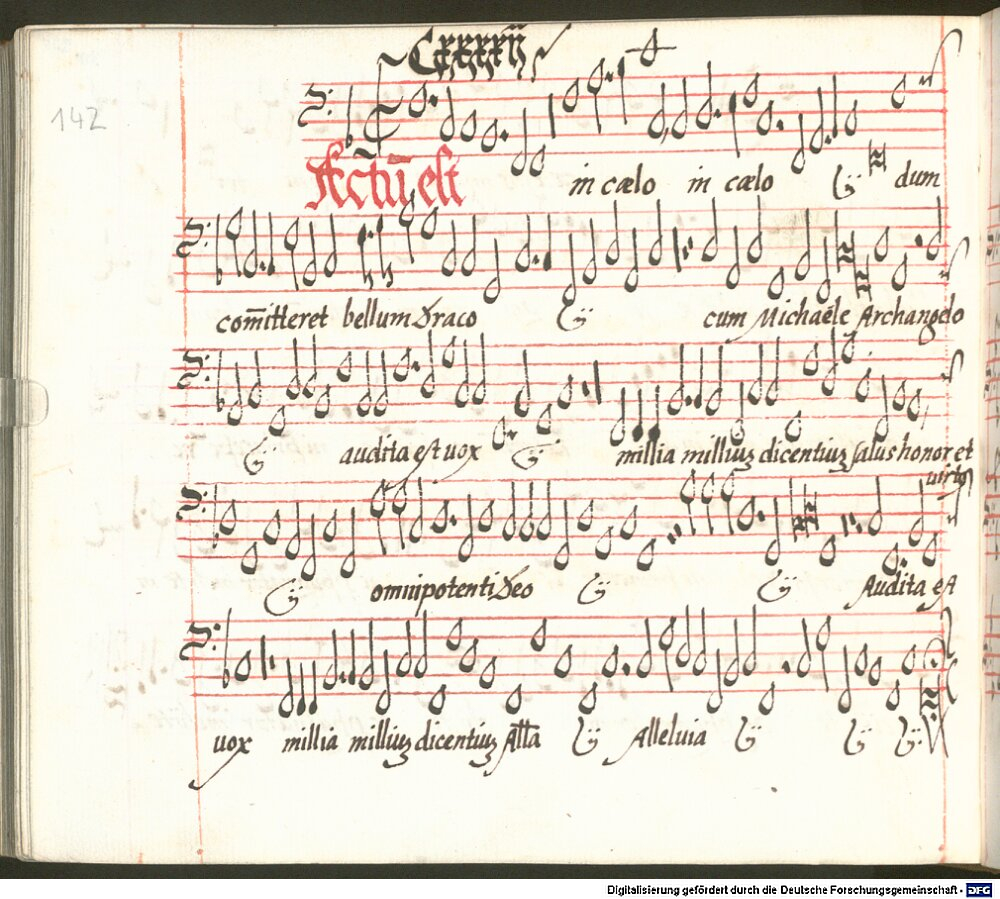 Cxxxxij 4
142
Factū est in cœlo in cœlo ij dum
com̄itteret bellum Draco ij cum Michaële Archangelo
ij audita est uox ij millia milliuȝ dicentiuȝ salus honor et
uirtus
ij omnipotenti Deo ij ij Audita est
uox millia milliuȝ dicentiuȝ All̄a ij Alleluia ij ij ij
Digitalisierung gefördert durch die Deutsche Forschungsgemeinschaft - DFG